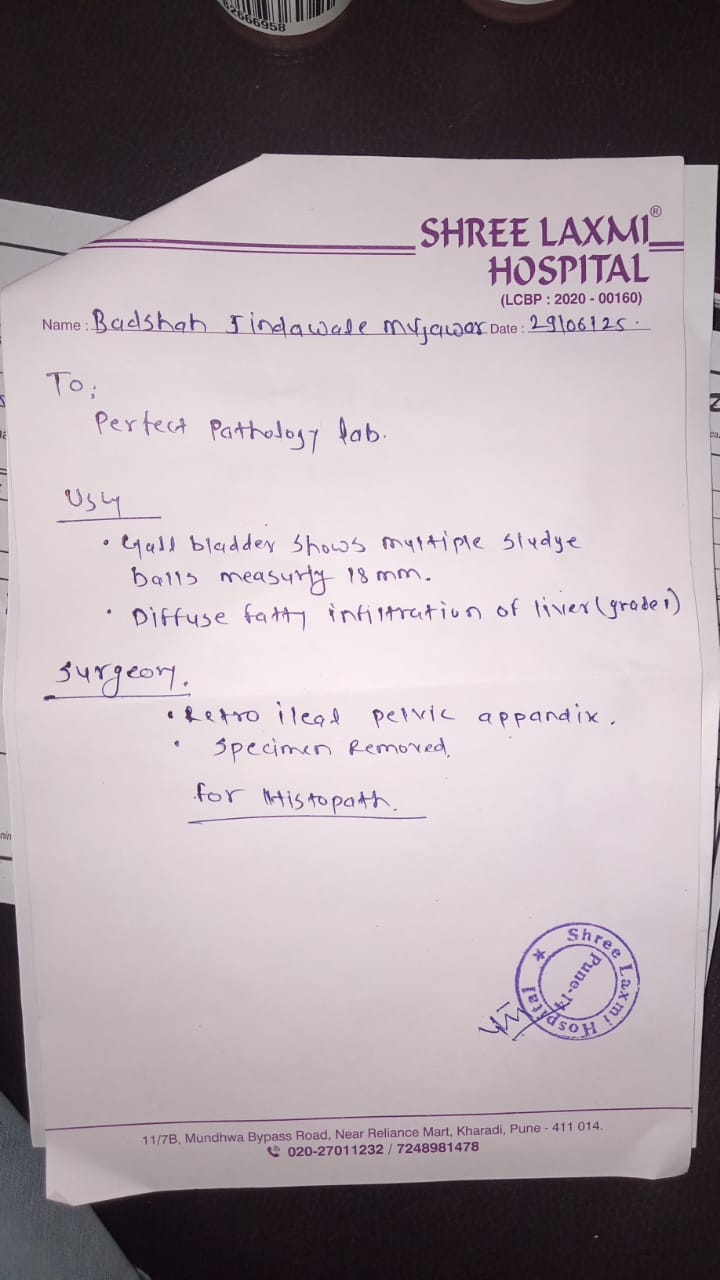 82666958
SHREE LAXMI®
HOSPITAL
(LCBP : 2020 - 00160)
Name : Badshah Jindawale Mujawar Date : 29/06/25.
To,
Perfect Pathology lab.
USG
• Gall bladder shows multiple sludge
balls measurig 18 mm.
• Diffuse fatty infiltration of liver (grade 1)
Surgeory.
• Retro ileal pelvic appandix.
• Specimen Removed,
for Histopath.
Shree Laxmi Hospital
Pune-14
11/7B, Mundhwa Bypass Road, Near Reliance Mart, Kharadi, Pune - 411 014.
020-27011232 / 7248981478